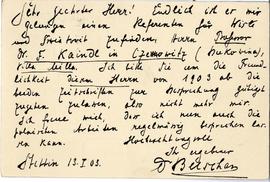 Sehr geehrter Herr! Endlich ist es mir
gelungen einen Referenten für Worte
und Freiheit zu finden. Herr Professor
Dr. F. Kaindl in Czernowitz (Bukowina),
Ich bitte Sie um die Freund
lichkeit diesem Herrn von 1903 ab die
beiden Zeitschriften zur Besprechung gütigst
zugehen zu lassen, also nicht mehr mir.
Ich freue mich, dass ich nun auch die
polnischen Arbeiten regelmässig besprechen las
sen kann. Hochachtungsvoll
Ihr ergebener
Stettin 13. I 03. Dr